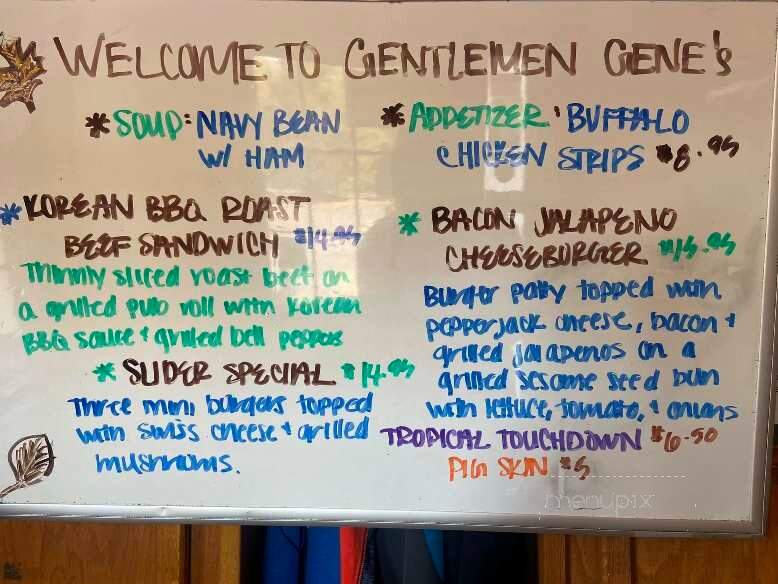 WELCOME TO GENTLEMEN GENE'S
* SOUP: NAVY BEAN
W/ HAM
* APPETIZER: BUFFALO
CHICKEN STRIPS $8.95
* KOREAN BBQ ROAST
BEEF SANDWICH $14.95
Thinly sliced roast beef on
a grilled pub roll with Korean
BBQ sauce + grilled bell peppers
* SLIDER SPECIAL $14.95
Three mini burgers topped
with swiss cheese + grilled
mushrooms.
* BACON JALAPENO
CHEESEBURGER $15.95
Burger patty topped with
pepperjack cheese, bacon +
grilled jalapenos on a
grilled sesame seed bun
with lettuce, tomato, + onions
TROPICAL TOUCHDOWN $6.50
PIG SKIN $5
menupix